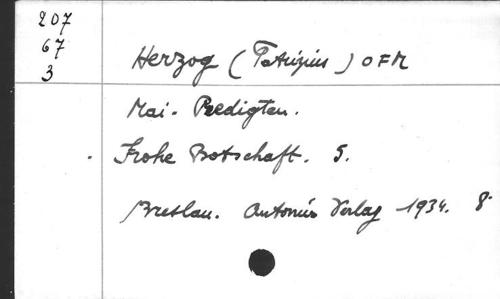 207
67
3
Herzog (Patrizius) OFM
Mai-Predigten.
Frohe Botschaft. 5.
Breslau. Antonius Verlag 1934. 8°